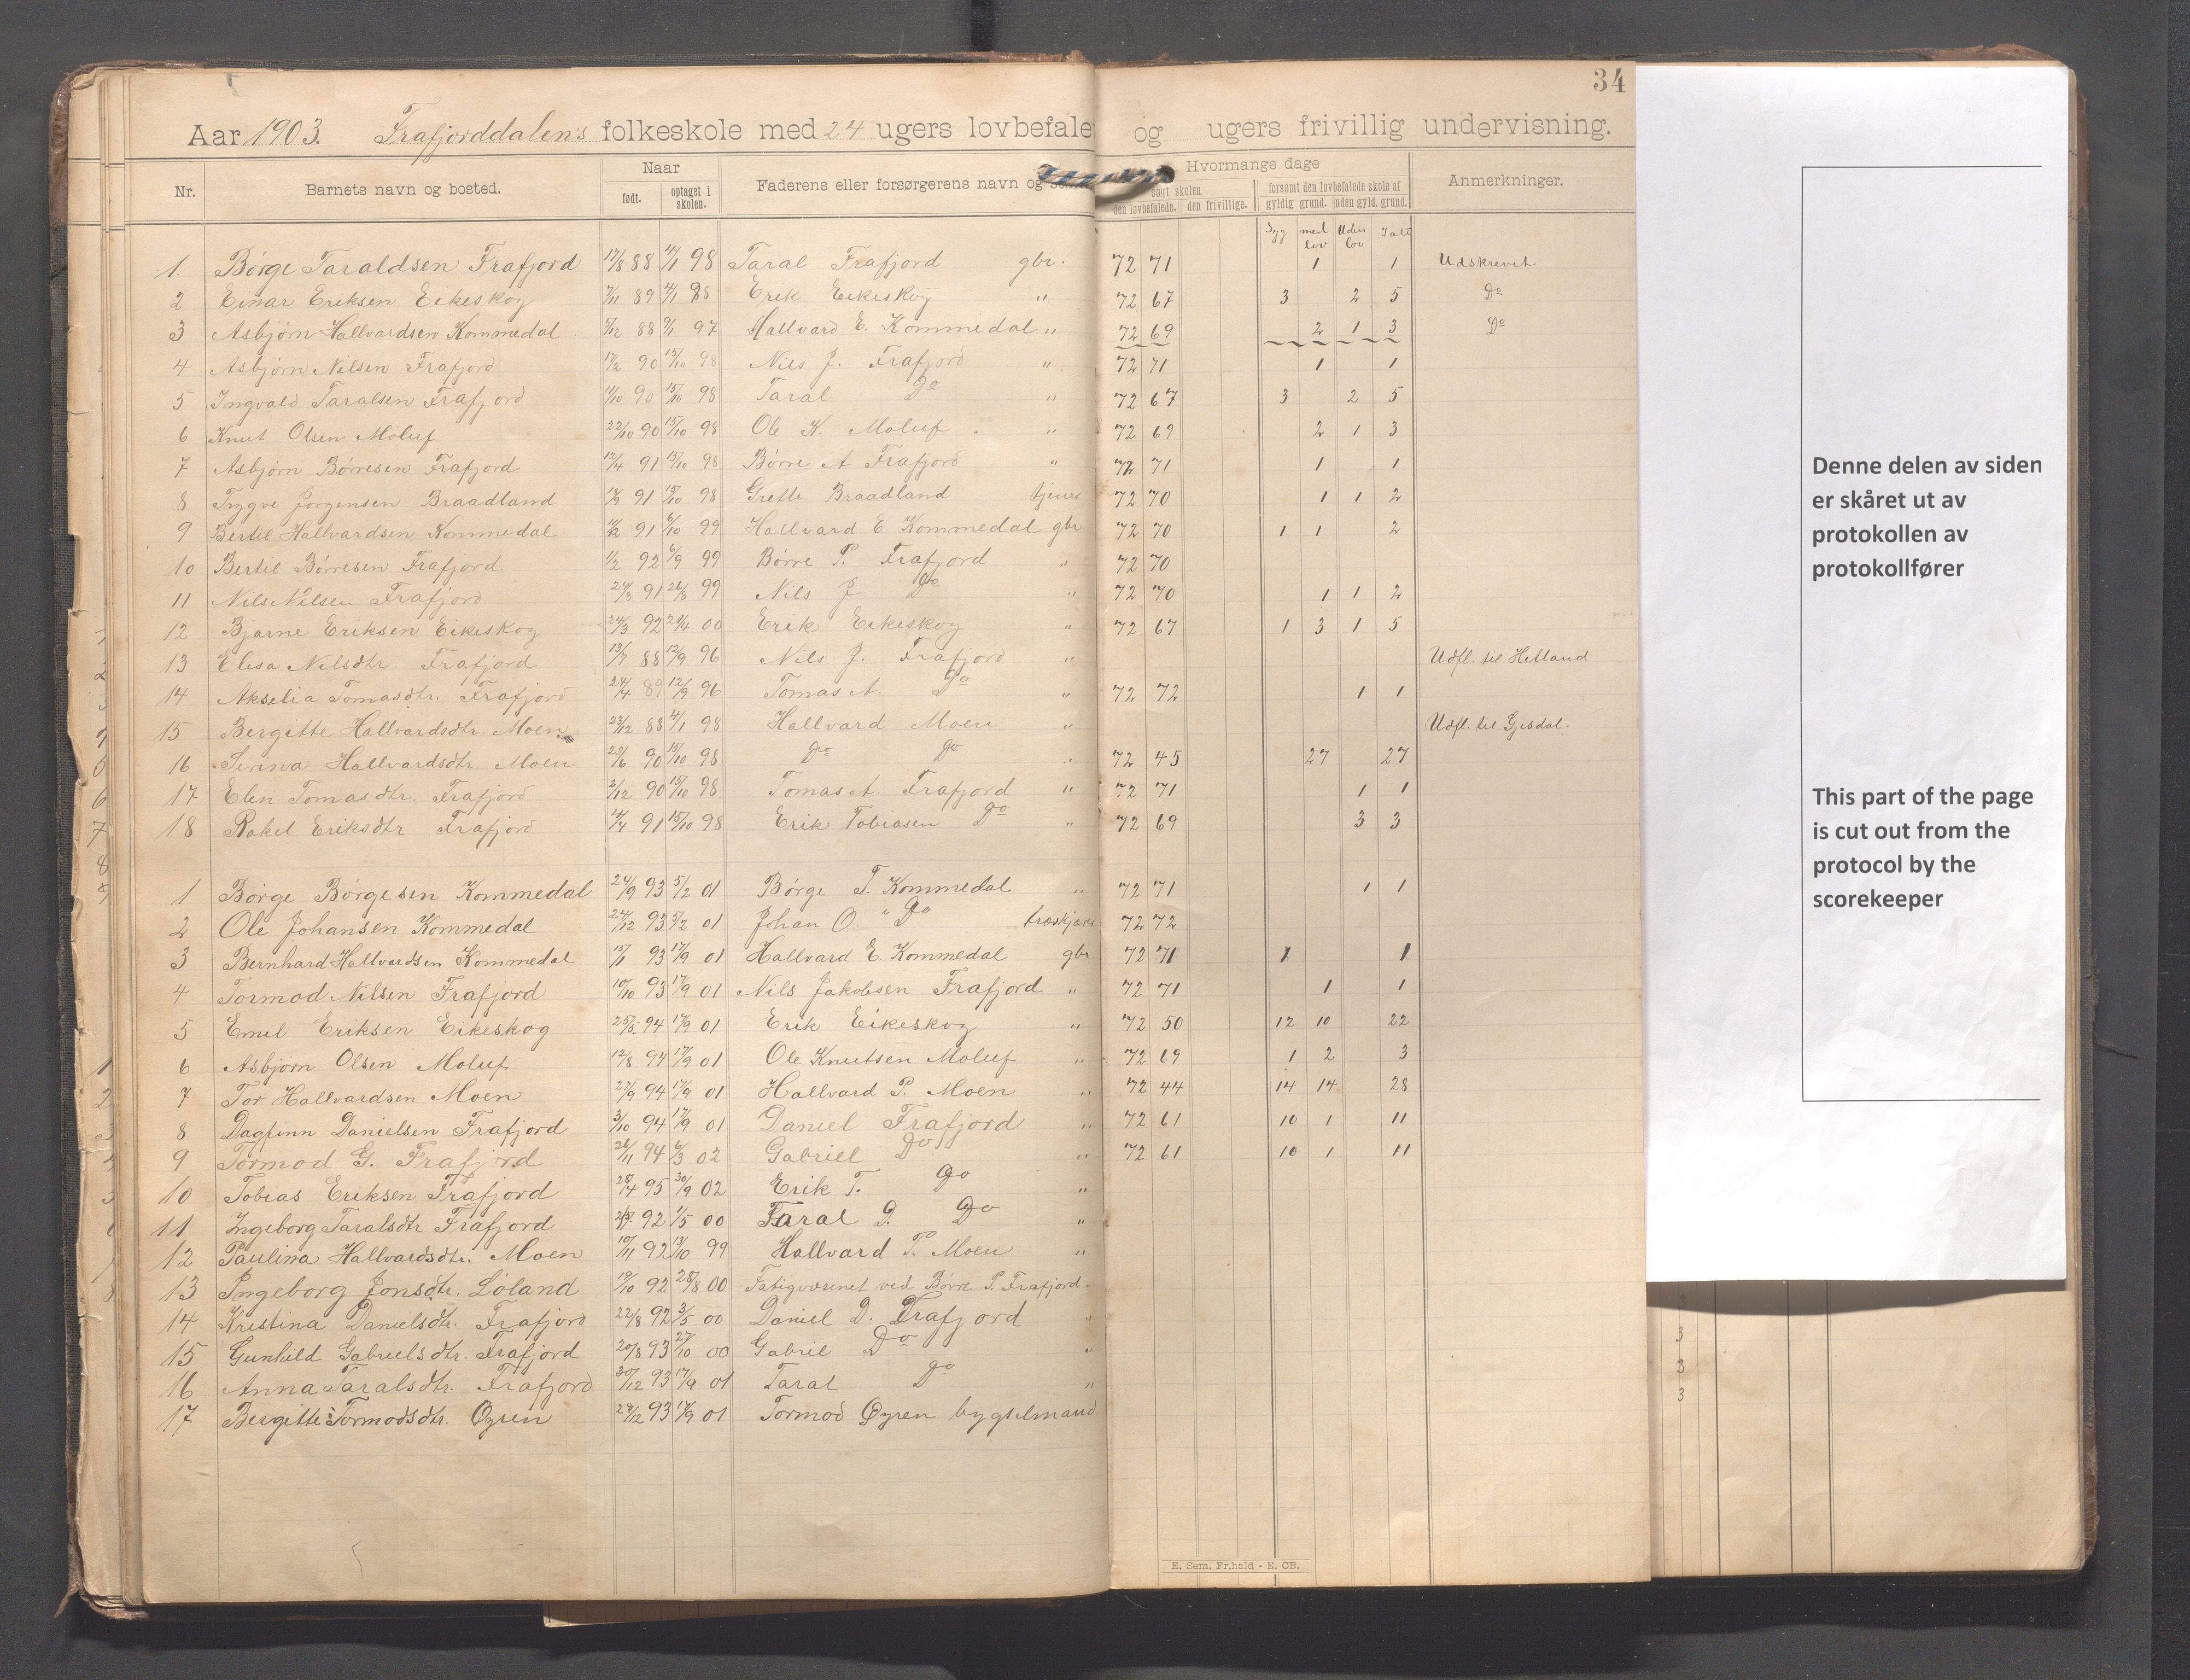 34
Aar 1903. Trafjorddalens folkeskole med 24 ugers lovbefale og ugers frivillig undervisning.
Nr. Barnets navn og bosted. Naar født. optaget i skolen. Faderens eller forsørgerens navn og Hvormange dage søgt skolen den lovbefalede. den frivillige. forsømt den lovbefalede skole af gyldig grund. uden gyld. grund. Anmerkninger.
Syg med lov Uden lov Ialt
1. Børge Taraldsen Frafjord 17/8 88 4/1 98 Taral Frafjord gbr. 72 71 1 1 Udskrevet
2 Einar Eriksen Eikeskog 7/11 89 4/1 98 Erik Eikeskog " 72 67 3 2 5 Do
3 Asbjørn Hallvardsen Kommedal 5/12 88 9/1 97 Hallvard E. Kommedal " 72 69 2 1 3 Do
4 Asbjørn Nilsen Frafjord 17/2 90 15/10 98 Nils J. Frafjord " 72 71 1 1
5 Ingvald Taralsen Frafjord 11/10 90 15/10 98 Taral Do " 72 67 3 2 5
6 Knut Olsen Moluf 22/10 90 15/10 98 Ole K. Moluf " 72 69 2 1 3
7 Asbjørn Børresen Frafjord 12/4 91 15/10 98 Børre A Frafjord " 72 71 1 1
8 Trygve Jørgensen Braadland 91 15/10 98 Grette Braadland tjener 72 70 1 1 2
9 Bertil Hallvardsen Kommedal 91 6/10 99 Hallvard E Kommedal gbr 72 70 1 1 2
10 Bertil Børresen Frafjord 1/2 92 6/9 99 Børre P. Frafjord " 72 70
11 Nils Nilsen Frafjord 24/8 91 26/8 99 Nils J Do " 72 70 1 1 2
12 Bjarne Eriksen Eikeskog 24/3 92 24/4 00 Erik Eikeskog " 72 67 1 3 1 5
13 Elisa Nilsdtr. Frafjord 13/7 88 12/9 96 Nils J. Frafjord " Udfl. til Hetland
14 Akselia Tomasdtr. Frafjord 24/4 89 12/9 96 Tomas A. Do " 72 72 1 1
15 Bergitte Hallvardsdtr. Moen 23/12 88 4/1 98 Hallvard Moen " Udfl. til Gjesdal.
16 Serina Hallvardsdtr. Moen 23/6 90 15/10 98 Do Do " 72 45 27 27
17 Elen Tomasdtr. Frafjord 2/12 90 15/10 98 Tomas A. Frafjord " 72 71 1 1
18 Rakel Eriksdtr Frafjord 14/4 91 15/10 98 Erik Tobiasen Do " 72 69 3 3
1 Børge Børgesen Kommedal 24/9 93 5/2 01 Børge T. Kommedal " 72 71 1 1
2 Ole Johansen Kommedal 24/12 93 5/2 01 Johan O. " Do træskjærer 72 72
3 Bernhard Hallvardsen Kommedal 15/1 93 17/9 01 Hallvard E. Kommedal gbr. 72 71 1 1
4 Tormod Nilsen Frafjord 10/10 93 17/9 01 Nils Jakobsen Frafjord " 72 71 1 1
5 Emil Eriksen Eikeskog 94 17/9 01 Erik Eikeskog " 72 50 12 10 22
6 Asbjørn Olsen Moluf 12/8 94 17/9 01 Ole Knutsen Moluf " 72 69 1 2 3
7 Tor Hallvardsen Moen 27/9 94 17/9 01 Hallvard P. Moen " 72 44 14 14 28
8 Dagfinn Danielsen Frafjord 3/10 94 17/9 01 Daniel Frafjord " 72 61 10 1 11
9 Tormod G. Frafjord 26/11 94 6/3 02 Gabriel Do " 72 61 10 1 11
10 Tobias Eriksen Frafjord 28/4 95 30/9 02 Erik T. Do "
11 Ingeborg Taralsdtr Frafjord 92 1/5 00 Taral D. Do "
12 Paulina Hallvardsdtr. Moen 10/11 92 13/10 99 Hallvard P. Moen "
13 Ingeborg Jonsdtr. Løland 19/10 92 28/8 00 Fatigvæsenet ved Børre P. Frafjord
14 Kristina Danielsdtr. Frafjord 22/8 92 3/5 00 Daniel D. Frafjord "
15 Gunhild Gabrielsdtr. Frafjord 20/8 93 27/10 00 Gabriel Do "
16 Anna Taralsdtr. Frafjord 30/12 93 17/9 01 Taral Do "
17 Bergitte Tormodsdtr. Øyren 29/12 93 17/9 01 Tormod Øyren bygselmand
E. Sem, Fr.hald - E. CB.
Denne delen av siden
er skåret ut av
protokollen av
protokollfører
This part of the page
is cut out from the
protocol by the
scorekeeper
3
3
3